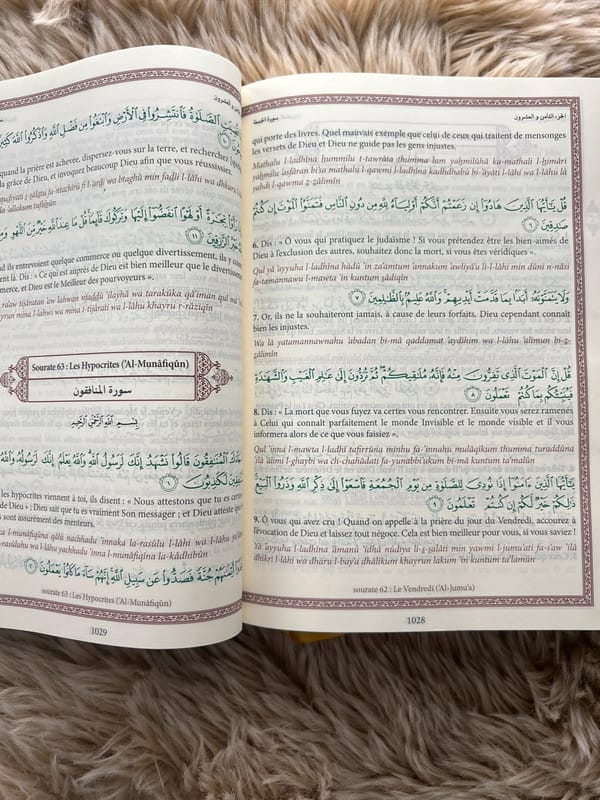 الجزء الثامن والعشرون
سورة الجمعة
qui porte des livres. Quel mauvais exemple que celui de ceux qui traitent de mensonges
les versets de Dieu et Dieu ne guide pas les gens injustes.
Mathalu l-ladhîna ḥummilu t-tawrâta thumma lam yaḥmilûhâ ka-mathali l-ḥimâri
yaḥmilu asfâran bi'sa mathalu l-qawmi l-ladhîna kadhdhabû bi-'âyâti l-lâhi wa l-lâhu lâ
yahdi l-qawma ẓ-ẓâlimîn
قُلْ يَٰٓأَيُّهَا ٱلَّذِينَ هَادُوٓا۟ إِن زَعَمْتُمْ أَنَّكُمْ أَوْلِيَآءُ لِلَّهِ مِن دُونِ ٱلنَّاسِ فَتَمَنَّوُا۟ ٱلْمَوْتَ إِن كُنتُمْ
صَٰدِقِينَ ٦
6. Dis : « Ô vous qui pratiquez le judaïsme ! Si vous prétendez être les bien-aimés de
Dieu à l'exclusion des autres, souhaitez donc la mort, si vous êtes véridiques ».
Qul yâ 'ayyuha l-ladhîna hâdû 'in za'amtum 'annakum 'awliyâ'u li-l-lâhi min dûni n-nâsi
fa-tamannawu l-mawta 'in kuntum ṣadiqîn
وَلَا يَتَمَنَّوْنَهُۥٓ أَبَدًۢا بِمَا قَدَّمَتْ أَيْدِيهِمْ وَٱللَّهُ عَلِيمٌۢ بِٱلظَّٰلِمِينَ ٧
7. Or, ils ne la souhaiteront jamais, à cause de leurs forfaits. Dieu cependant connaît
bien les injustes.
Wa lâ yatamannawnahu 'abadan bi-mâ qaddamat 'aydîhim wa l-lâhu 'alîmun bi-ẓ-
ẓâlimîn
قُلْ إِنَّ ٱلْمَوْتَ ٱلَّذِى تَفِرُّونَ مِنْهُ فَإِنَّهُۥ مُلَٰقِيكُمْ ثُمَّ تُرَدُّونَ إِلَىٰ عَٰلِمِ ٱلْغَيْبِ وَٱلشَّهَٰدَةِ
فَيُنَبِّئُكُم بِمَا كُنتُمْ تَعْمَلُونَ ٨
8. Dis : « La mort que vous fuyez va certes vous rencontrer. Ensuite vous serez ramenés
à Celui qui connaît parfaitement le monde Invisible et le monde visible et il vous
informera alors de ce que vous faisiez ».
Qul 'inna l-mawta l-ladhî tafirrûna minhu fa-'innahu mulâqîkum thumma turaddûna
'ilâ 'âlimi l-ghaybi wa ch-chahâdati fa-yunabbi'ukum bi-mâ kuntum ta'malûn
يَٰٓأَيُّهَا ٱلَّذِينَ ءَامَنُوٓا۟ إِذَا نُودِىَ لِلصَّلَوٰةِ مِن يَوْمِ ٱلْجُمُعَةِ فَٱسْعَوْا۟ إِلَىٰ ذِكْرِ ٱللَّهِ وَذَرُوا۟ ٱلْبَيْعَ
ذَٰلِكُمْ خَيْرٌ لَّكُمْ إِن كُنتُمْ تَعْلَمُونَ ٩
9. Ô vous qui avez cru ! Quand on appelle à la prière du jour du Vendredi, accourez à
l'évocation de Dieu et laissez tout négoce. Cela est bien meilleur pour vous, si vous saviez !
Yâ 'ayyuha l-ladhîna 'âmanû 'idhâ nûdiya li-ṣ-ṣalâti min yawmi l-jumu'ati fa-s'aw 'ilâ
dhikri l-lâhi wa dharu l-bay'a dhâlikum khayrun lakum 'in kuntum ta'lamûn
sourate 62 : Le Vendredi ('Al-Jumu'a)
1028
ٱلصَّلَوٰةُ فَٱنتَشِرُوا۟ فِى ٱلْأَرْضِ وَٱبْتَغُوا۟ مِن فَضْلِ ٱللَّهِ وَٱذْكُرُوا۟ ٱللَّهَ
quand la prière est achevée, dispersez-vous sur la terre, et recherchez
la grâce de Dieu, et invoquez beaucoup Dieu afin que vous réussissiez.
ṣ-ṣalâtu fa-ntachirû fi l-'arḍi wa btaghû min faḍli l-lâhi wa dhkuru
la-'allakum tufliḥûn
تِجَٰرَةً أَوْ لَهْوًا ٱنفَضُّوٓا۟ إِلَيْهَا وَتَرَكُوكَ قَآئِمًا قُلْ مَا عِندَ ٱللَّهِ خَيْرٌ مِّنَ ٱللَّهْوِ
خَيْرُ ٱلرَّٰزِقِينَ ١١
ils entrevoient quelque commerce ou quelque divertissement, ils y
là. Dis : « Ce qui est auprès de Dieu est bien meilleur que le divertissement
commerce, et Dieu est le Meilleur des pourvoyeurs ».
ra'aw tijâratan 'aw lahwan nfaḍḍû 'ilayhâ wa tarakûka qâ'iman qul mâ
mina l-lahwi wa mina t-tijârati wa l-lâhu khayru r-râziqîn
Sourate 63 : Les Hypocrites ('Al-Munâfiqûn)
سورة المنافقون
بِسْمِ ٱللَّهِ ٱلرَّحْمَٰنِ ٱلرَّحِيمِ
ٱلْمُنَٰفِقُونَ قَالُوا۟ نَشْهَدُ إِنَّكَ لَرَسُولُ ٱللَّهِ وَٱللَّهُ يَعْلَمُ إِنَّكَ لَرَسُولُهُۥ وَٱللَّهُ
لَكَٰذِبُونَ ١
les hypocrites viennent à toi, ils disent : « Nous attestons que tu es
de Dieu » ; Dieu sait que tu es vraiment Son messager ; et Dieu atteste
sont assurément des menteurs.
l-munâfiqûna qâlû nachhadu 'innaka la-rasûlu l-lâhi wa l-lâhu
la-rasûluhu wa l-lâhu yachhadu 'inna l-munâfiqîna la-kâdhibûn
أَيْمَٰنَهُمْ جُنَّةً فَصَدُّوا۟ عَن سَبِيلِ ٱللَّهِ إِنَّهُمْ سَآءَ مَا كَانُوا۟ يَعْمَلُونَ ٢
sourate 63 : Les Hypocrites ('Al-Munâfiqûn)
1029